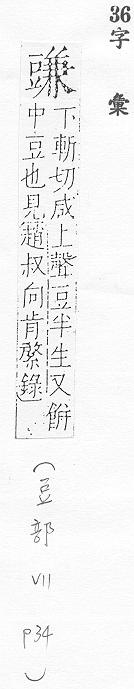 36字彙
豏
下斬切咸上聲豆半生又餠
中豆也見趙叔向肯綮錄
(豆部 VII P34)